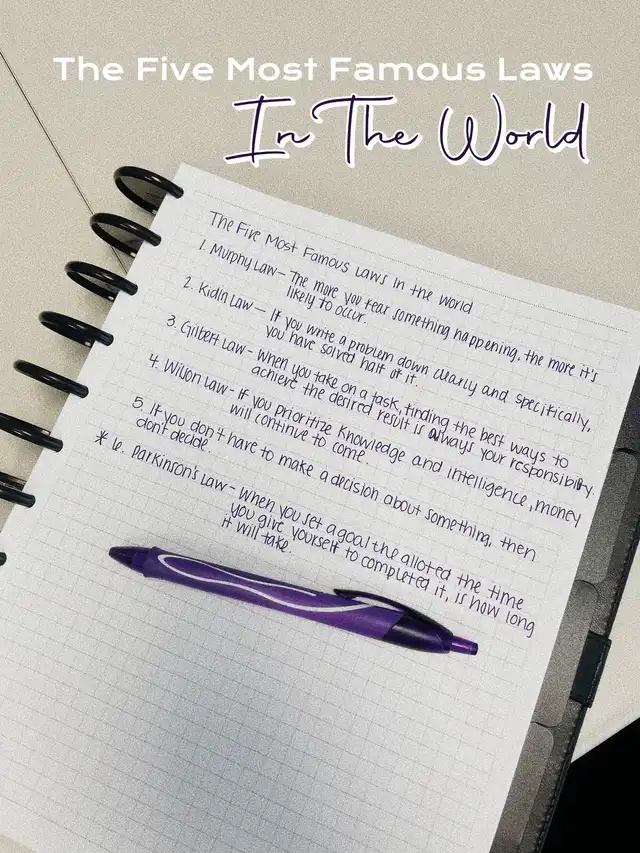 The Five Most Famous Laws
In The World
The Five Most Famous Laws in the world
1. Murphy Law - The more you fear something happening, the more it's
likely to occur.
2. Kidlin Law - If you write a problem down clearly and specifically,
you have solved half of it.
3. Gilbert Law - When you take on a task, finding the best ways to
achieve the desired result is always your responsibility.
4. Wilson Law - If you prioritize Knowledge and intelligence, money
will continue to come.
5. If you don't have to make a decision about something, then
don't decide.
* 6. Parkinson's Law - When you set a goal the alloted the time
you give yourself to completed it, is how long
it will take.